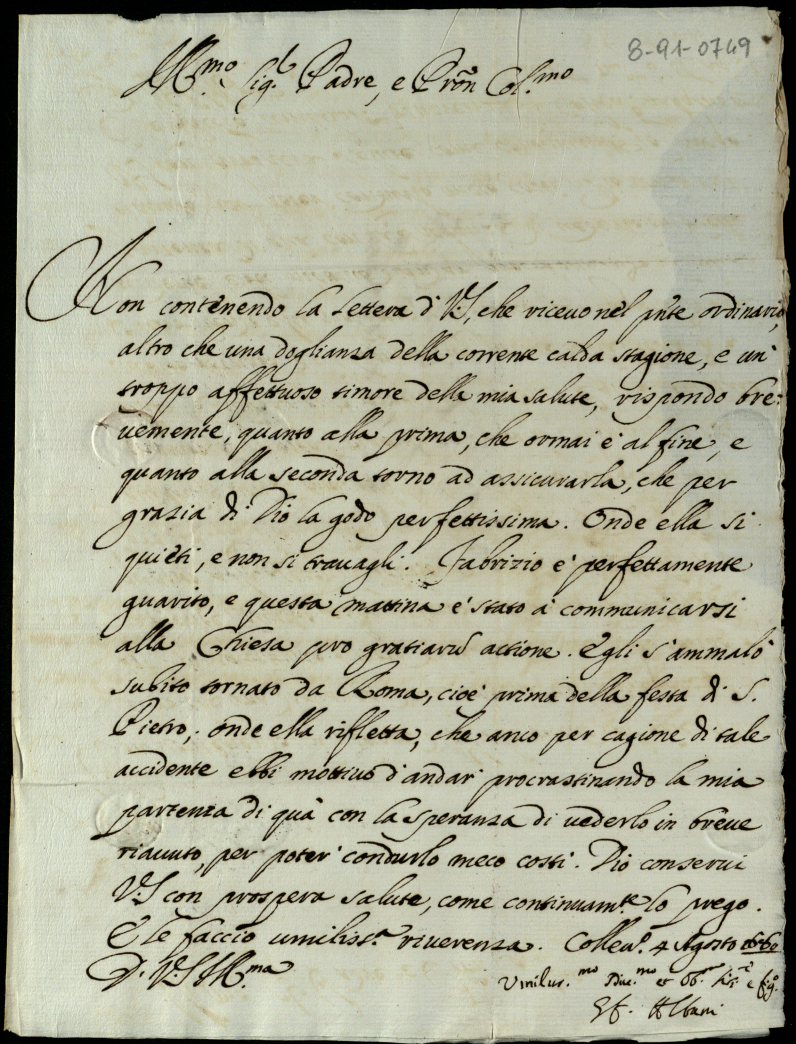 8-91-0749
Ill.mo Sig.r Padre, e Pron Col.mo
Non contenendo la lettera di V.S, che ricevo nel pnte ordinario,
altro che una doglianza della corrente calda stagione, e un
troppo affettuoso timore della mia salute, rispondo bre-
uemente, quanto alla prima, che ormai è al fine, e
quanto alla seconda torno ad assicurarla, che per
grazia di Dio la godo perfettissima. Onde ella si
quieti, e non si trauagli. Fabrizio è perfettamente
guarito, e questa mattina è stato à communicarsi
alla Chiesa pro gratiarū actione. Egli s'ammalò
subito tornato da Roma, cioè prima della festa di S.
Pietro; onde ella rifletta, che anco per cagione di tale
accidente ebbi mottiuo d'andar procrastinando la mia
partenza di quà con la speranza di uederlo in breue
riauuto, per poter condurlo meco costì. Dio conserui
V.S con prospera salute, come continuam.te lo prego.
E le faccio umiliss.a riuerenza. Colleu.o 4 Agosto
D. V.S Ill.ma
Umilis.mo Diu.mo et Obb. e fig.o
Albani